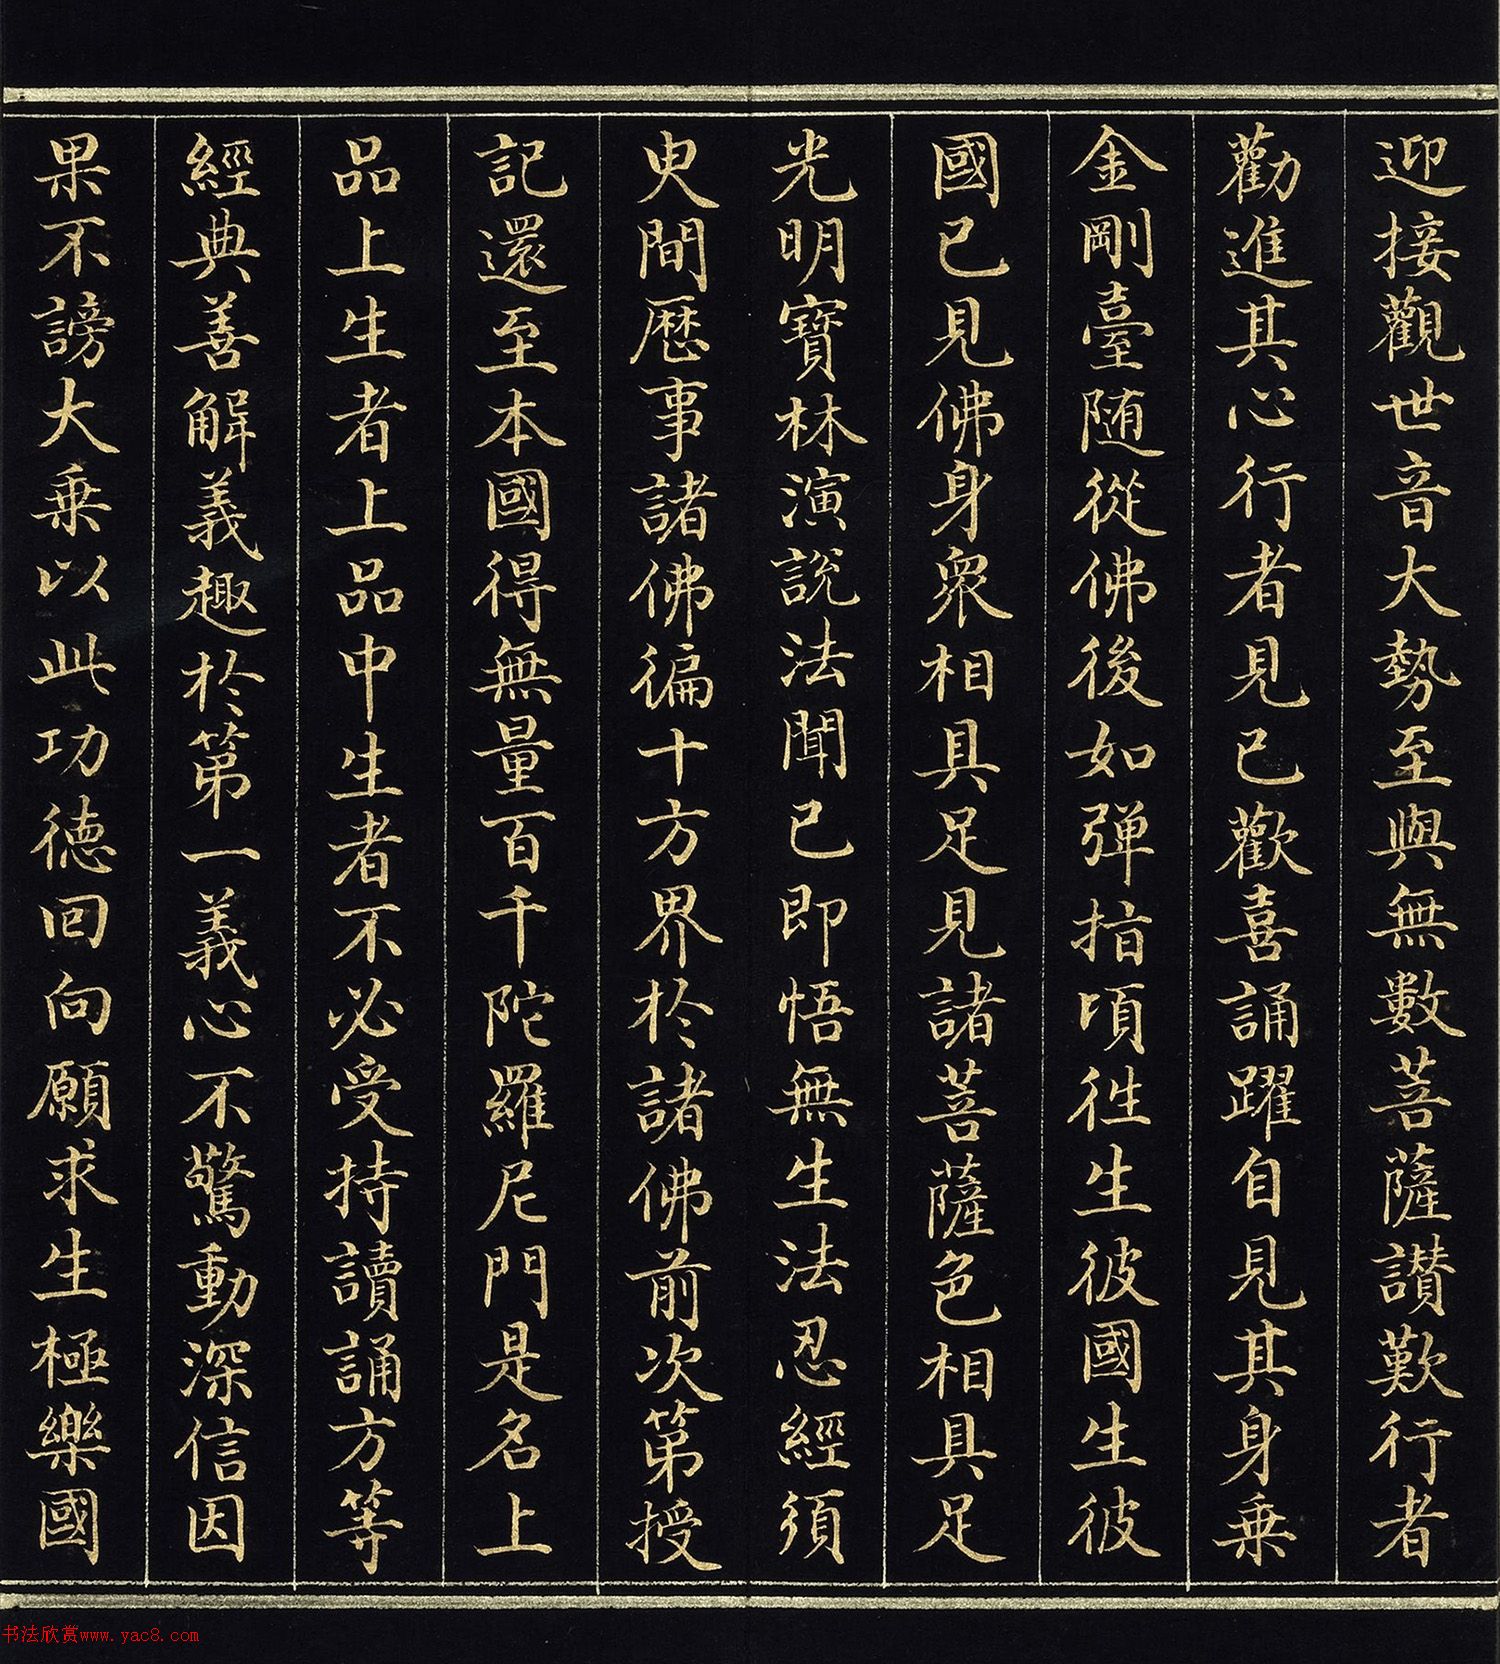 迎接觀世音大勢至與無數菩薩讃歎行者
勸進其心行者見已歡喜誦躍自見其身乗
金剛臺随從佛後如弾指頃徃生彼國生彼
國已見佛身衆相具足見諸菩薩色相具足
光明寶林演説法聞已即悟無生法忍經須
臾間歴事諸佛徧十方界於諸佛前次第授
記還至本國得無量百千陀羅尼門是名上
品上生者上品中生者不必受持讀誦方等
經典善解義趣於第一義心不驚動深信因
果不謗大乗以此功德回向願求生極樂國
书法欣赏www.yac8.com